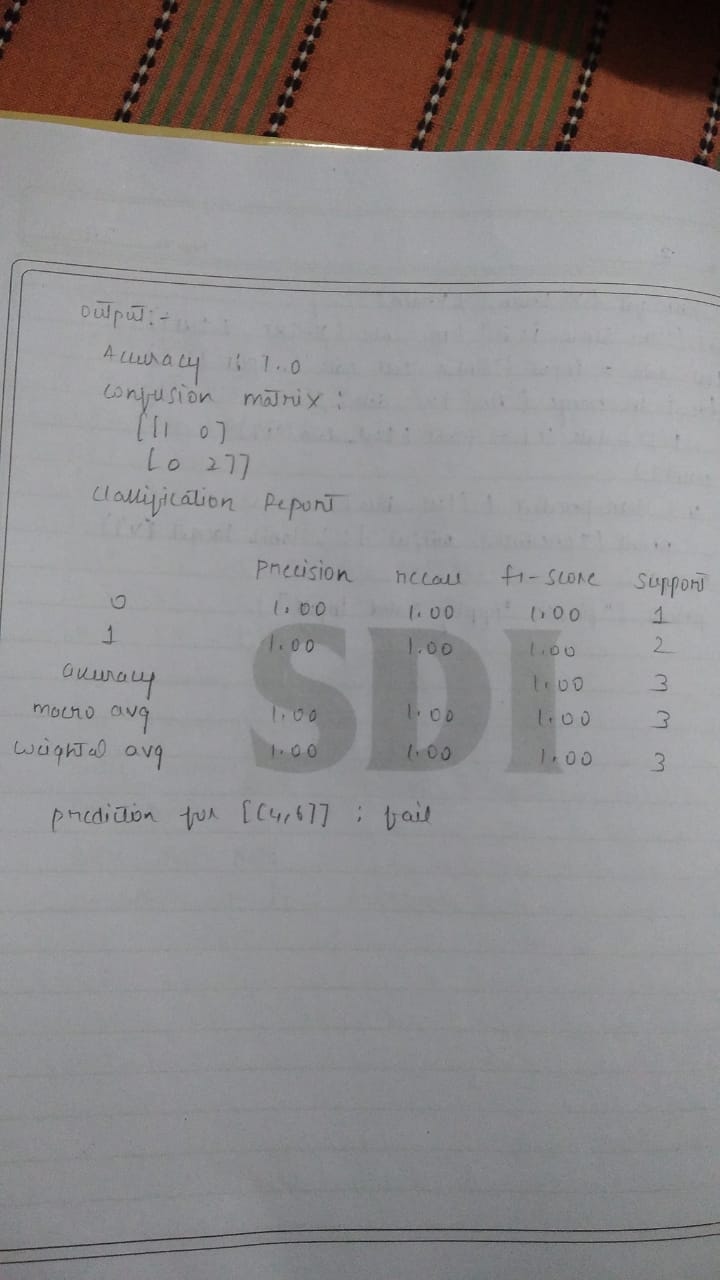 Output:-
Accuracy : 1.0
Confusion matrix :
[[1 0]
[0 2]]
Classification Report
Precision recall f1-score support
0 1.00 1.00 1.00 1
1 1.00 1.00 1.00 2
accuracy 1.00 3
macro avg 1.00 1.00 1.00 3
weighted avg 1.00 1.00 1.00 3
SDI
prediction for [[4,6]] : fail